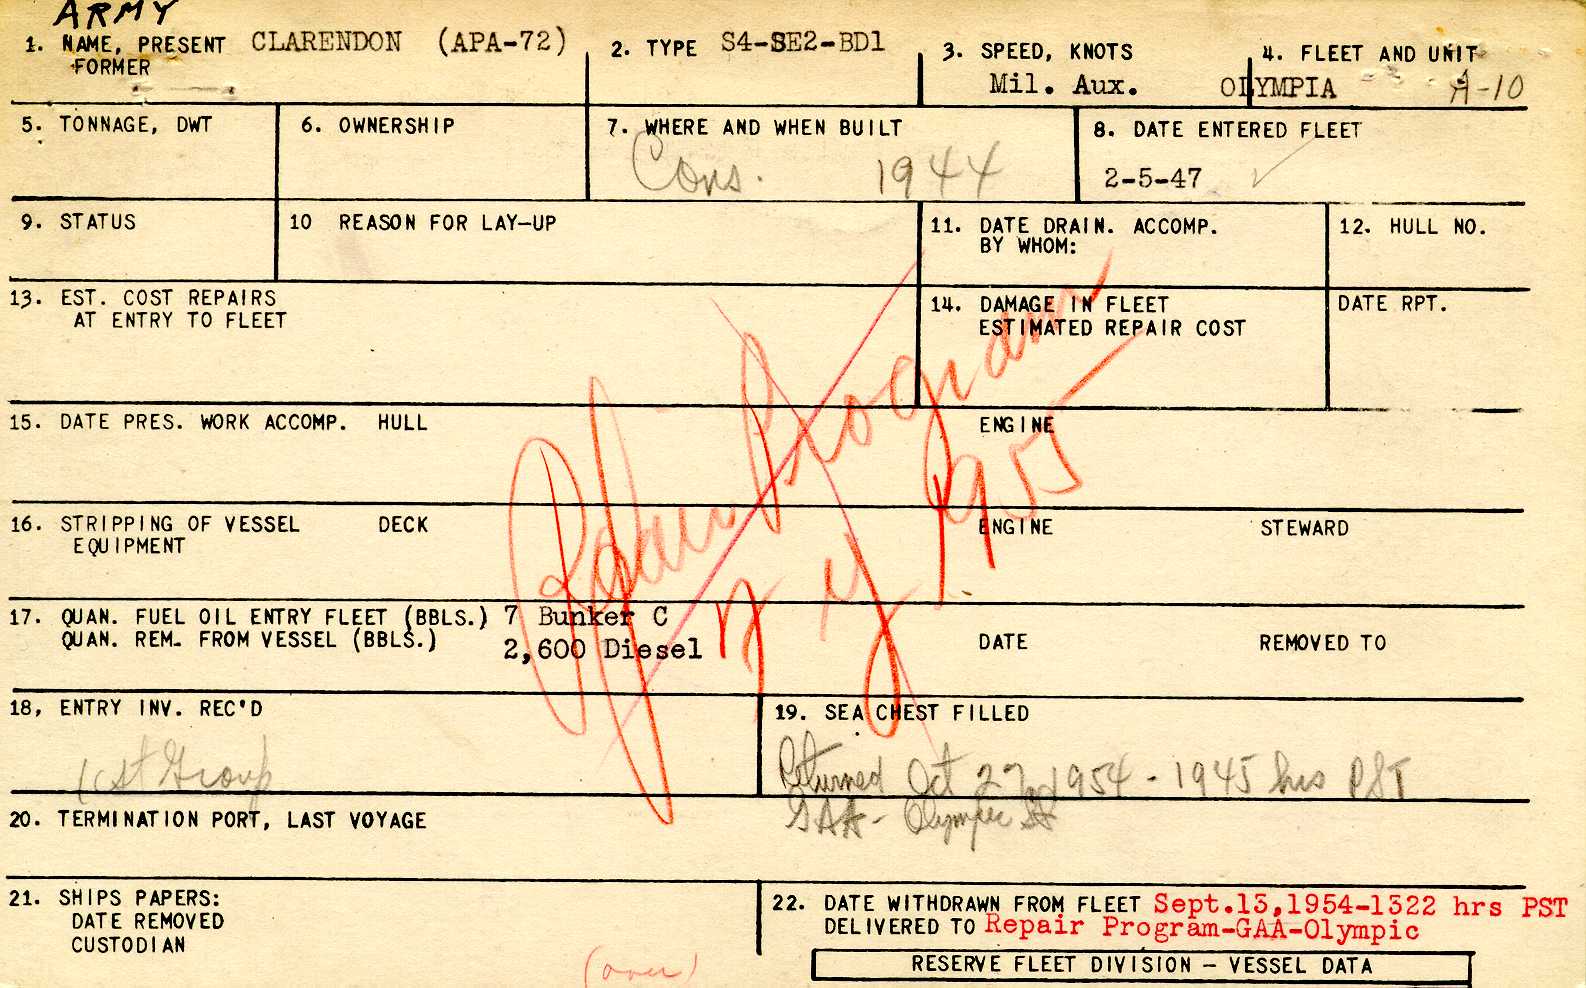 ARMY
1. NAME, PRESENT CLARENDON (APA-72)
FORMER
2. TYPE S4-SE2-BD1
3. SPEED, KNOTS
Mil. Aux.
4. FLEET AND UNIT
OLYMPIA A-10
5. TONNAGE, DWT
6. OWNERSHIP
7. WHERE AND WHEN BUILT
Cons. 1944
8. DATE ENTERED FLEET
2-5-47 ✓
9. STATUS
10 REASON FOR LAY-UP
11. DATE DRAIN. ACCOMP.
BY WHOM:
12. HULL NO.
13. EST. COST REPAIRS
AT ENTRY TO FLEET
14. DAMAGE IN FLEET
ESTIMATED REPAIR COST
DATE RPT.
15. DATE PRES. WORK ACCOMP. HULL
ENGINE
Repair Program
1955
16. STRIPPING OF VESSEL EQUIPMENT
DECK
ENGINE
STEWARD
17. QUAN. FUEL OIL ENTRY FLEET (BBLS.) 7 Bunker C
QUAN. REM. FROM VESSEL (BBLS.) 2,600 Diesel
DATE
REMOVED TO
18, ENTRY INV. REC'D
1st Group
19. SEA CHEST FILLED
Returned Oct 27, 1954 - 1945 hrs PST
GAA - Olympic SS
20. TERMINATION PORT, LAST VOYAGE
21. SHIPS PAPERS:
DATE REMOVED
CUSTODIAN
22. DATE WITHDRAWN FROM FLEET Sept.13,1954-1322 hrs PST
DELIVERED TO Repair Program-GAA-Olympic
(over)
RESERVE FLEET DIVISION – VESSEL DATA